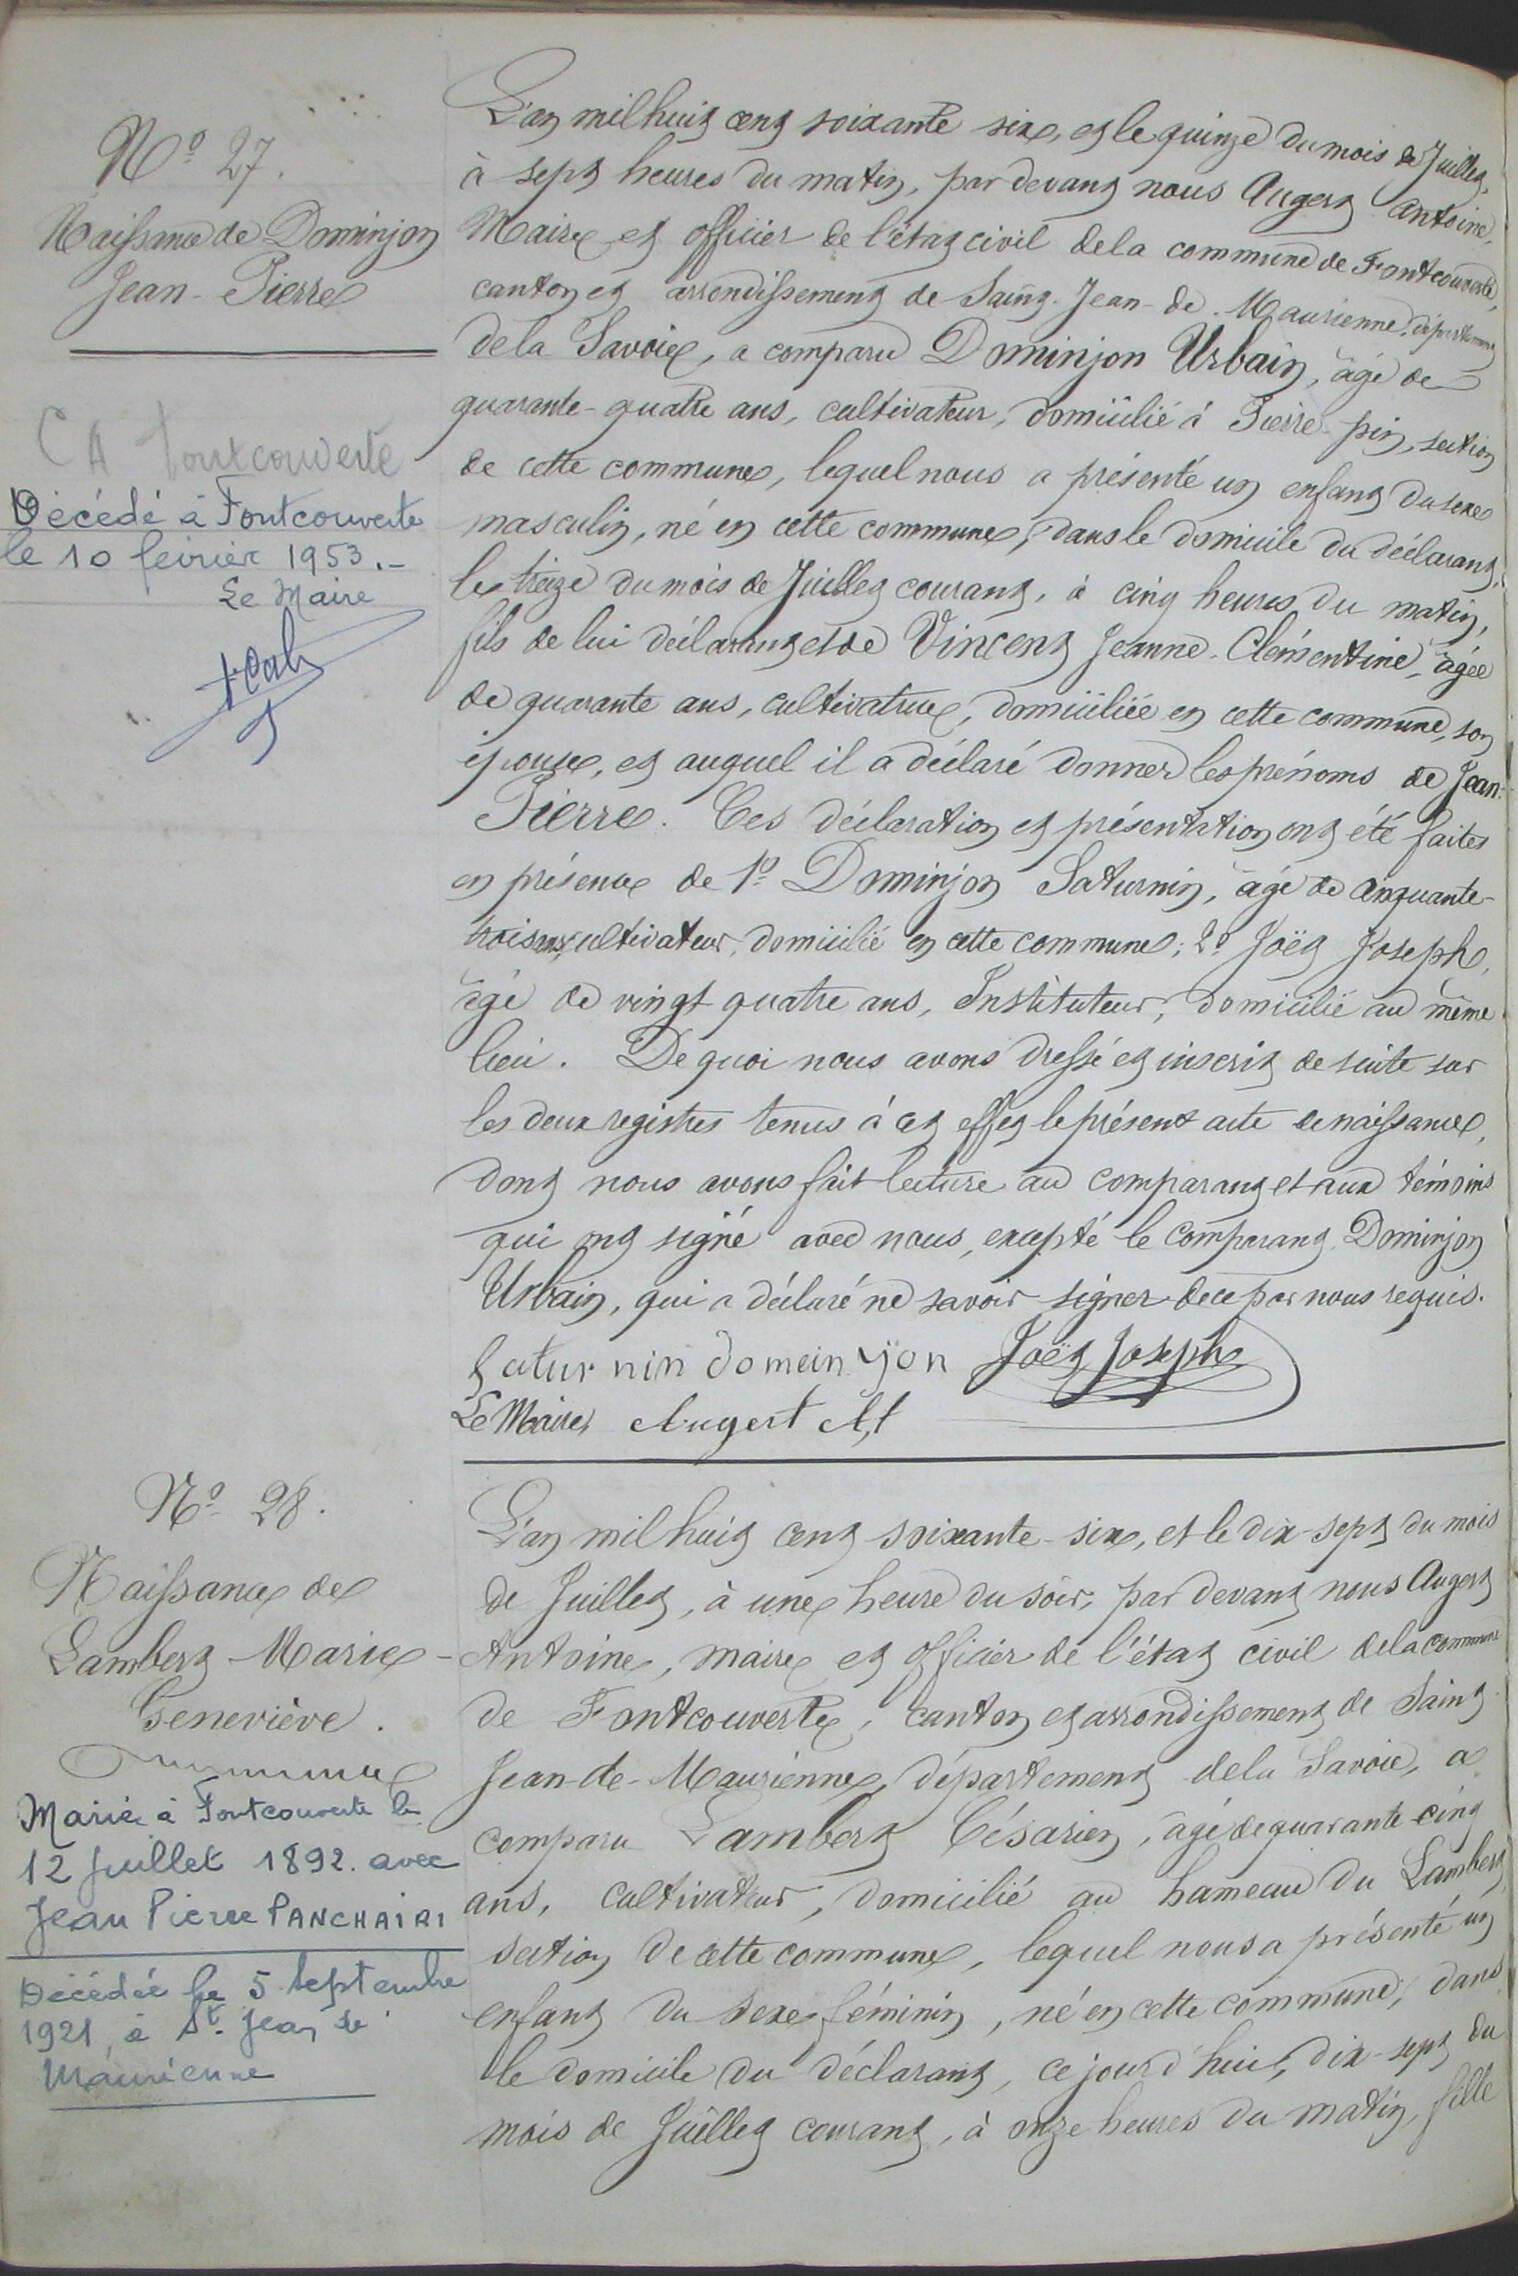 Nº 27.
Naissance de Dominjon
Jean-Pierre
CA Fontcouverte
Décédé à Fontcouverte
le 10 février 1953.-
Le Maire
L'an mil huit cent soixante six, et le quinze du mois de Juillet,
à sept heures du matin, par devant nous Augert Antoine,
Maire et officier de l'état civil de la commune de Fontcouverte,
canton et arrondissement de Saint-Jean-de-Maurienne, département
de la Savoie, a comparu Dominjon Urbain, âgé de
quarante-quatre ans, cultivateur, domicilié à Pierre-pin, section
de cette commune, lequel nous a présenté un enfant du sexe
masculin, né en cette commune, dans le domicile du déclarant,
le treize du mois de Juillet courant, à cinq heures du matin,
fils de lui déclarant et de Vincent Jeanne-Clémentine, âgée
de quarante ans, cultivatrice, domiciliée en cette commune, son
épouse, et auquel il a déclaré donner les prénoms de Jean-
Pierre. Ces déclaration et présentation ont été faites
en présence de 1º Dominjon Saturnin, âgé de cinquante-
trois ans, cultivateur, domicilié en cette commune; 2º Joët Joseph,
âgé de vingt quatre ans, Instituteur, domicilié au même
lieu. De quoi nous avons dressé et inscrit de suite sur
les deux registres tenus à cet effet le présent acte de naissance,
dont nous avons fait lecture au comparant et aux témoins
qui ont signé avec nous, excepté le comparant Dominjon
Urbain, qui a déclaré ne savoir signer de ce par nous requis.
Saturnin domeinjon Joët Joseph
Le Maire, Augert At
Nº 28.
Naissance de
Lambert Marie-
Geneviève.
Mariée à Fontcouverte le
12 juillet 1892. avec
Jean Pierre PANCHAIRI
Décédée le 5 septembre
1921, à St. Jean de
Maurienne
L'an mil huit cent soixante-six, et le dix-sept du mois
de Juillet, à une heure du soir, par devant nous Augert
Antoine, maire et officier de l'état civil de la commune
de Fontcouverte, canton et arrondissement de Saint-
Jean-de-Maurienne, département de la Savoie, a
comparu Lambert Césarien, âgé de quarante-cinq
ans, cultivateur, domicilié au hameau du Lambert,
section de cette commune, lequel nous a présenté un
enfant du sexe féminin, né en cette commune, dans
le domicile du déclarant, ce jourd'hui, dix-sept du
mois de Juillet courant, à onze heures du matin, fille